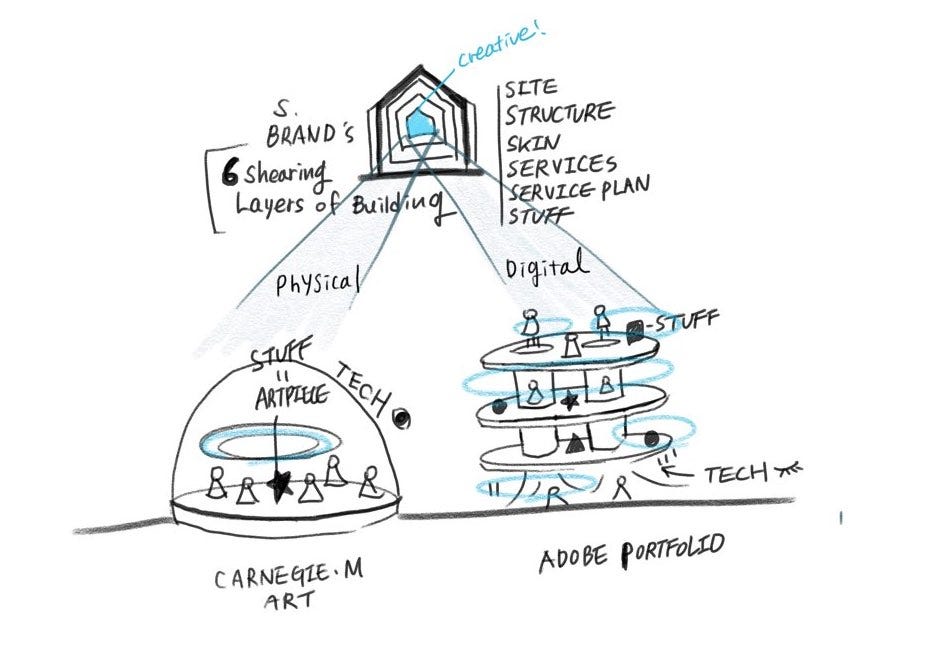 creative!
S.
BRAND'S
6 Shearing
Layers of Building
SITE
STRUCTURE
SKIN
SERVICES
SERVICE PLAN
STUFF
Physical
Digital
STUFF
"
ARTPIECE
TECH
-STUFF
TECH
CARNEGIE.M
ART
ADOBE PORTFOLIO